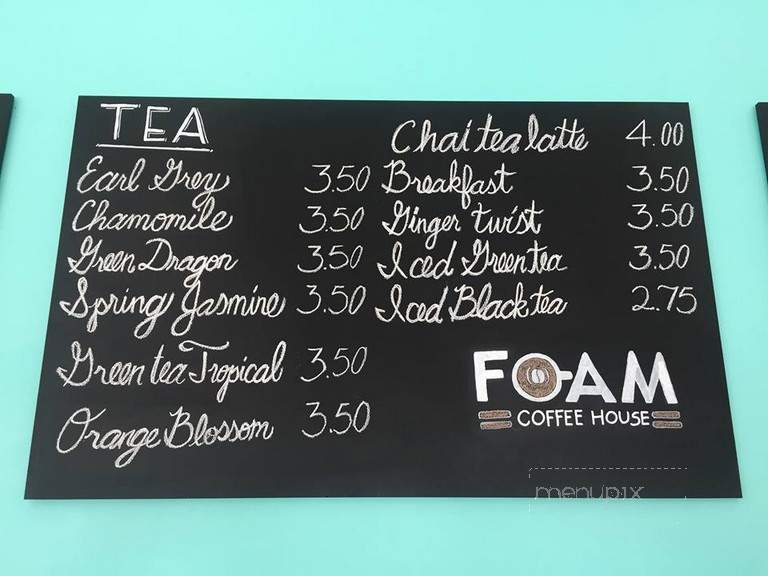 TEA
Earl Grey 3.50
Chamomile 3.50
Green Dragon 3.50
Spring Jasmine 3.50
Green tea Tropical 3.50
Orange Blossom 3.50
Chai tea latte 4.00
Breakfast 3.50
Ginger twist 3.50
Iced Green tea 3.50
Iced Black tea 2.75
FOAM
COFFEE HOUSE
menupix